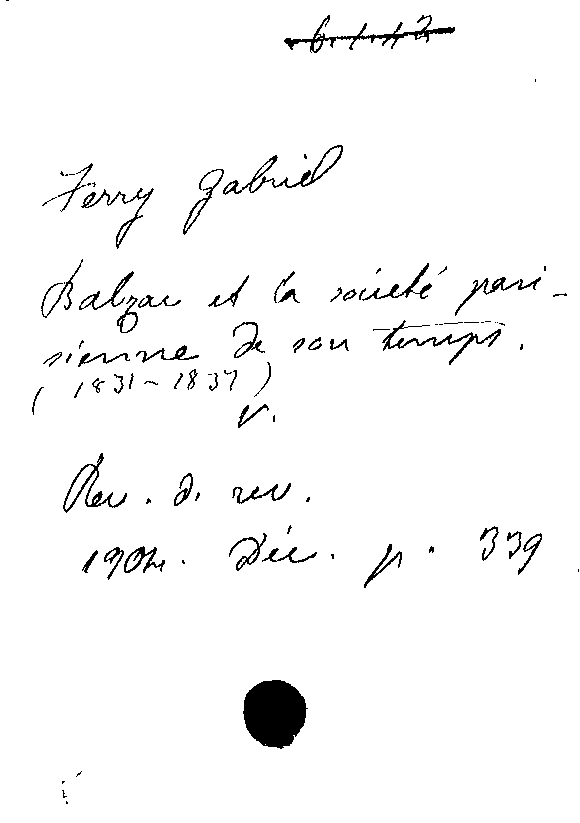 6.1.42
Ferry Gabriel
Balzac et la société pari-
sienne de son temps.
(1831-1837)
v.
Rev. d. rev.
1904. Déc. p. 339